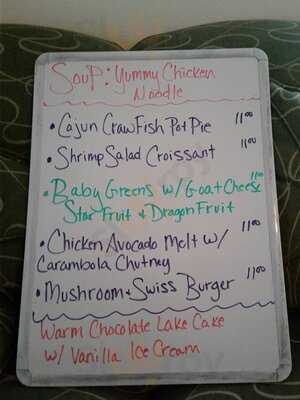 Soup: Yummy Chicken
Noodle
• Cajun CrawFish Pot Pie 11.00
• Shrimp Salad Croissant 11.00
• Baby Greens w/ Goat Cheese 11.00
Star Fruit & Dragon Fruit
• Chicken Avocado Melt w/ 11.00
Carambola Chutney
• Mushroom & Swiss Burger 11.00
Warm Chocolate Lake Cake
w/ Vanilla Ice Cream